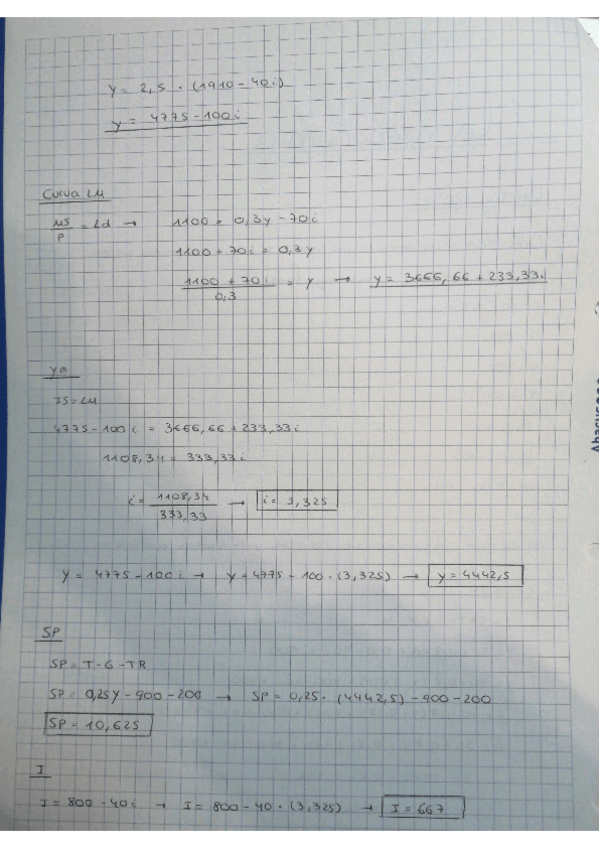 y = 2,5 · (1910 - 40i)
y = 4775 - 100i
Curva LM
MS/P = Ld → 1100 = 0,3y - 70i
1100 + 70i = 0,3y
1100 + 70i / 0,3 = y → y = 3666,66 + 233,33i
Ye
IS = LM
4775 - 100i = 3666,66 + 233,33i
1108,34 = 333,33i
i = 1108,34 / 333,33 → i = 3,325
y = 4775 - 100i → y = 4775 - 100 · (3,325) → y = 4442,5
SP
SP = T - G - TR
SP = 0,25y - 900 - 200 → SP = 0,25 · (4442,5) - 900 - 200
SP = 10,625
I
I = 800 - 40i → I = 800 - 40 · (3,325) → I = 667